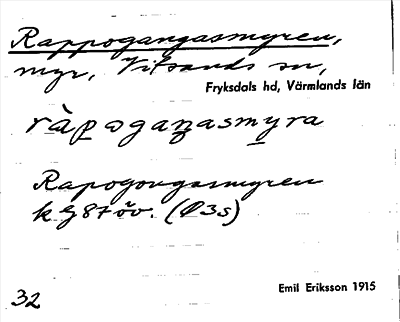 Rappogangasmyren,
myr, Vitsands sn,
Fryksdals hd, Värmlands län
ràpoganasmyra
Rapogongasmyren
k G 87 öv. (Ø3s)
Emil Eriksson 1915
32